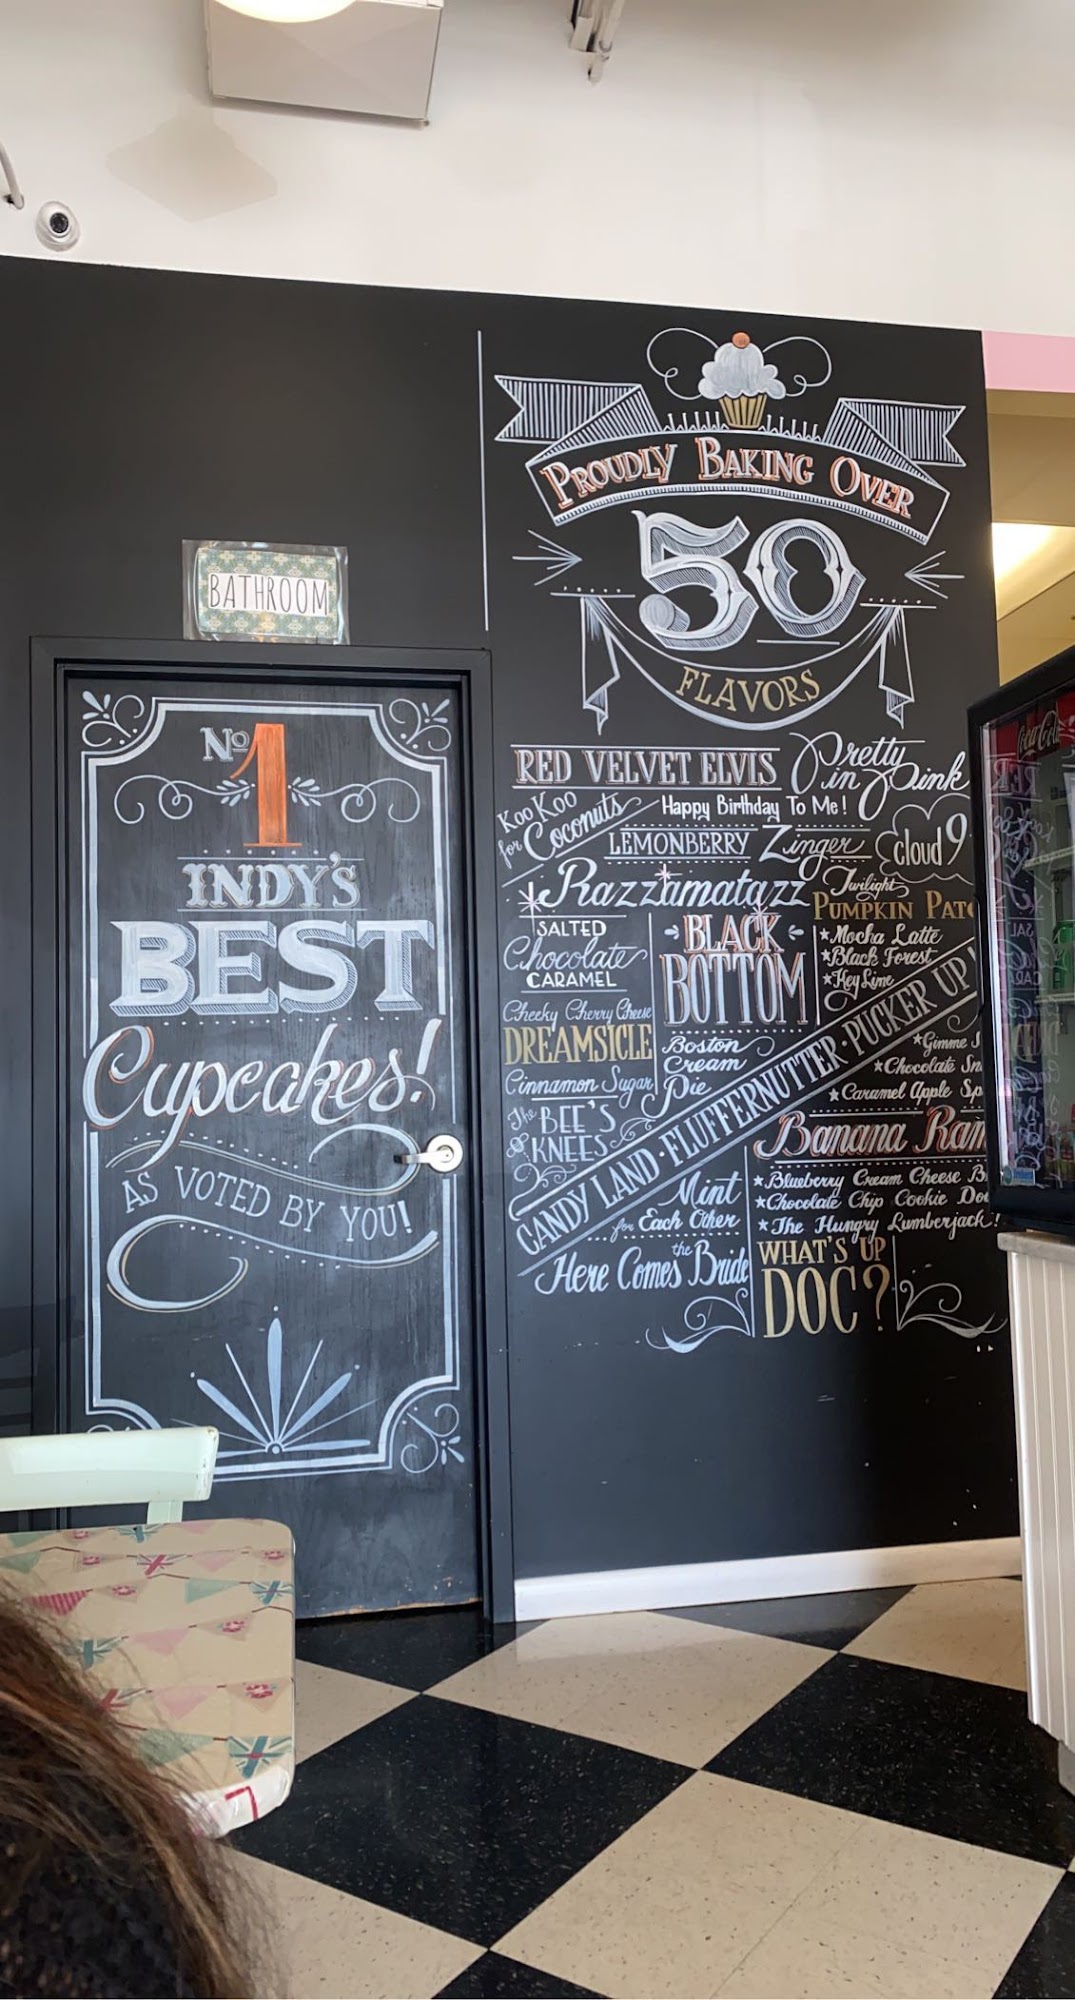 BATHROOM
No 1
INDY'S
BEST
Cupcakes!
AS VOTED BY YOU!
PROUDLY BAKING OVER
50
FLAVORS
RED VELVET ELVIS
Pretty
in Pink
Koo Koo
for Coconuts
Happy Birthday To Me!
LEMONBERRY Zinger
cloud 9
Razzamatazz
Twilight
PUMPKIN
SALTED
Chocolate
CARAMEL
BLACK
BOTTOM
★Mocha Latte
★Black Forest
★Hey Lime
Cheeky Cherry Cheese
DREAMSICLE
Cinnamon Sugar
Boston
Cream
Pie
The
BEE'S
KNEES
CANDY LAND · FLUFFERNUTTER · PUCKER UP!
★Gimme
★Chocolate
★Caramel Apple
Banana
★Blueberry Cream Cheese
★Chocolate Chip Cookie
★The Hungry Lumberjack!
Mint
for Each Other
Here Comes the Bride
WHAT'S UP
DOC?
Coca-Cola